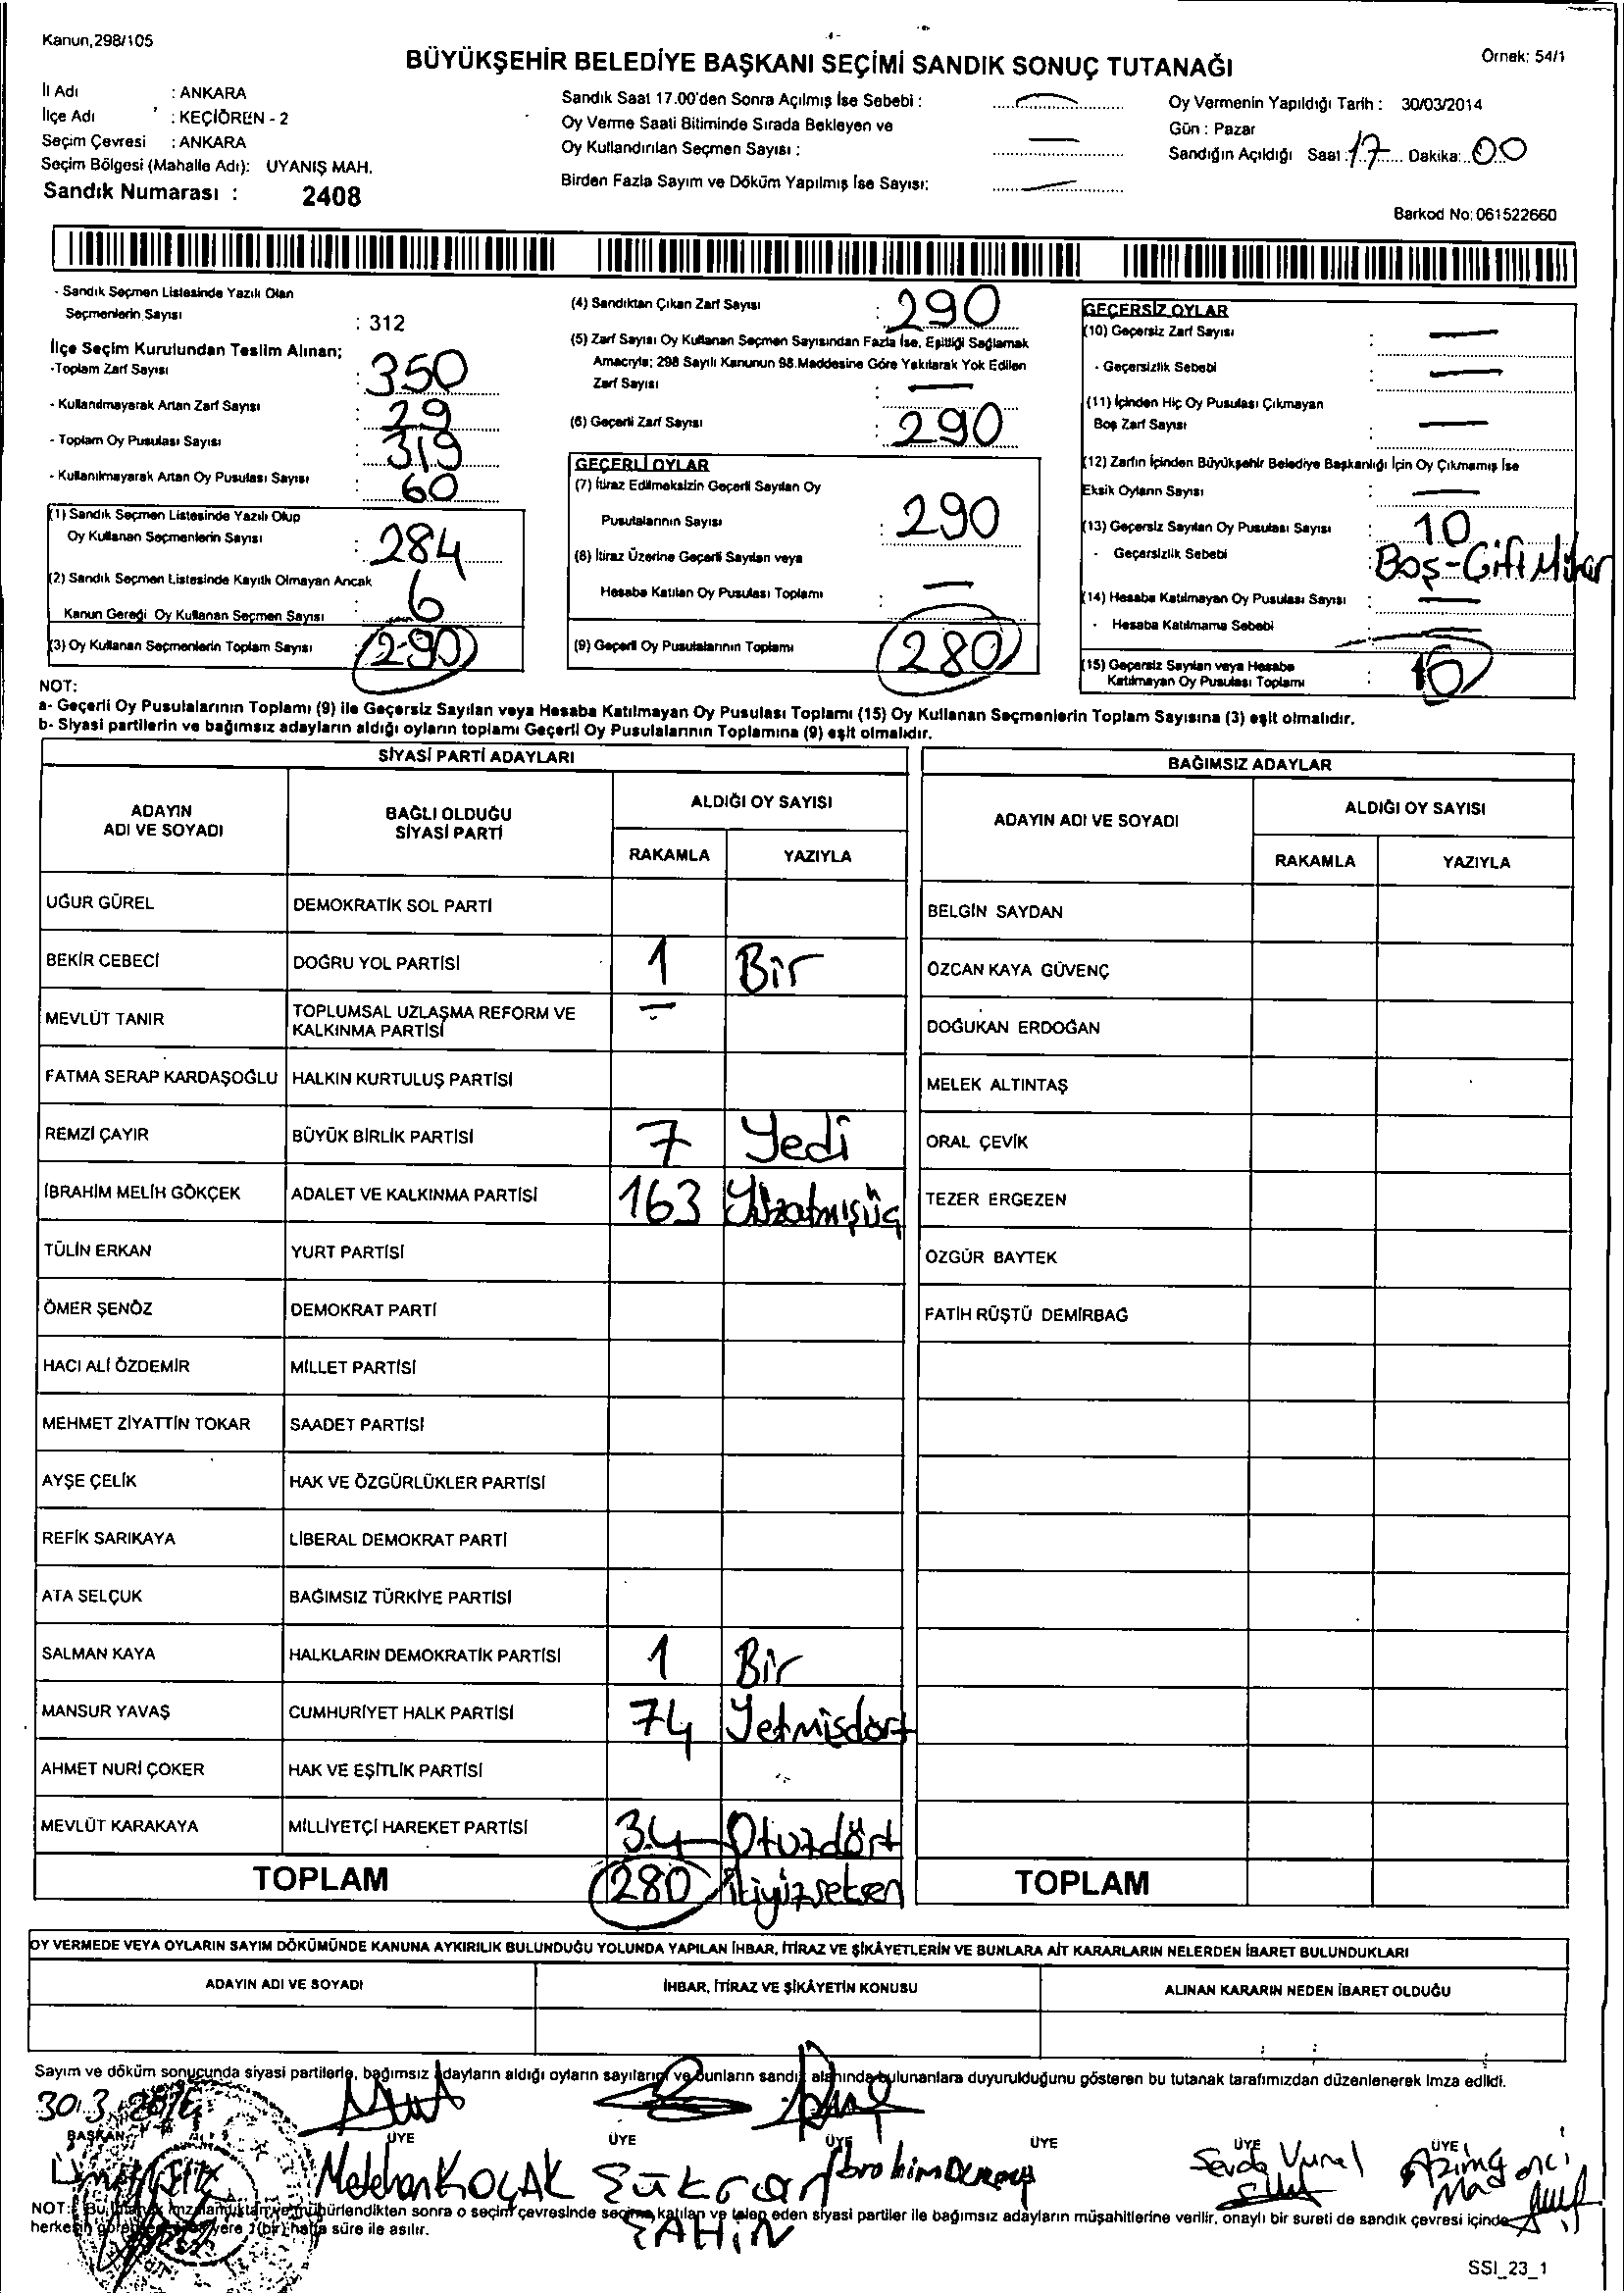 Kanun,298/105
BÜYÜKŞEHİR BELEDİYE BAŞKANI SEÇİMİ SANDIK SONUÇ TUTANAĞI
Örnek: 54/1
İl Adı : ANKARA
İlçe Adı : KEÇİÖREN - 2
Seçim Çevresi : ANKARA
Seçim Bölgesi (Mahalle Adı): UYANIŞ MAH.
Sandık Numarası : 2408
Sandık Saat 17.00'den Sonra Açılmış İse Sebebi :
Oy Verme Saati Bitiminde Sırada Bekleyen ve
Oy Kullandırılan Seçmen Sayısı :
Birden Fazla Sayım ve Döküm Yapılmış İse Sayısı:
Oy Vermenin Yapıldığı Tarih : 30/03/2014
Gün : Pazar
Sandığın Açıldığı Saat : 17 Dakika: 00
Barkod No: 061522660
- Sandık Seçmen Listesinde Yazılı Olan
Seçmenlerin Sayısı : 312
İlçe Seçim Kurulundan Teslim Alınan;
-Toplam Zarf Sayısı : 350
- Kullanılmayarak Artan Zarf Sayısı : 29
- Toplam Oy Pusulası Sayısı : 319
- Kullanılmayarak Artan Oy Pusulası Sayısı : 60
(1) Sandık Seçmen Listesinde Yazılı Olup
Oy Kullanan Seçmenlerin Sayısı : 284
(2) Sandık Seçmen Listesinde Kayıtlı Olmayan Ancak
Kanun Gereği Oy Kullanan Seçmen Sayısı : 6
(3) Oy Kullanan Seçmenlerin Toplam Sayısı : 290
(4) Sandıktan Çıkan Zarf Sayısı : 290
(5) Zarf Sayısı Oy Kullanan Seçmen Sayısından Fazla İse, Eşitliği Sağlamak
Amacıyla; 298 Sayılı Kanunun 98.Maddesine Göre Yakılarak Yok Edilen
Zarf Sayısı : —
(6) Geçerli Zarf Sayısı : 290
GEÇERLİ OYLAR
(7) İtiraz Edilmeksizin Geçerli Sayılan Oy
Pusulalarının Sayısı : 290
(8) İtiraz Üzerine Geçerli Sayılan veya
Hesaba Katılan Oy Pusulası Toplamı : —
(9) Geçerli Oy Pusulalarının Toplamı : 280
GEÇERSİZ OYLAR
(10) Geçersiz Zarf Sayısı : —
- Geçersizlik Sebebi : —
(11) İçinden Hiç Oy Pusulası Çıkmayan
Boş Zarf Sayısı : —
(12) Zarfın İçinden Büyükşehir Belediye Başkanlığı İçin Oy Çıkmamış İse
Eksik Oyların Sayısı : —
(13) Geçersiz Sayılan Oy Pusulası Sayısı : 10
- Geçersizlik Sebebi : Boş-Çift Mühür
(14) Hesaba Katılmayan Oy Pusulası Sayısı : —
- Hesaba Katılmama Sebebi : —
(15) Geçersiz Sayılan veya Hesaba
Katılmayan Oy Pusulası Toplamı : 10
NOT:
a- Geçerli Oy Pusulalarının Toplamı (9) ile Geçersiz Sayılan veya Hesaba Katılmayan Oy Pusulası Toplamı (15) Oy Kullanan Seçmenlerin Toplam Sayısına (3) eşit olmalıdır.
b- Siyasi partilerin ve bağımsız adayların aldığı oyların toplamı Geçerli Oy Pusulalarının Toplamına (9) eşit olmalıdır.
SİYASİ PARTİ ADAYLARI
ADAYIN
ADI VE SOYADI
BAĞLI OLDUĞU
SİYASİ PARTİ
ALDIĞI OY SAYISI
RAKAMLA YAZIYLA
UĞUR GÜREL DEMOKRATİK SOL PARTİ
BEKİR CEBECİ DOĞRU YOL PARTİSİ 1 Bir
MEVLÜT TANIR TOPLUMSAL UZLAŞMA REFORM VE
KALKINMA PARTİSİ —
FATMA SERAP KARDAŞOĞLU HALKIN KURTULUŞ PARTİSİ
REMZİ ÇAYIR BÜYÜK BİRLİK PARTİSİ 7 Yedi
İBRAHİM MELİH GÖKÇEK ADALET VE KALKINMA PARTİSİ 163 Yüzatmışüç
TÜLİN ERKAN YURT PARTİSİ
ÖMER ŞENÖZ DEMOKRAT PARTİ
HACI ALİ ÖZDEMİR MİLLET PARTİSİ
MEHMET ZİYATTİN TOKAR SAADET PARTİSİ
AYŞE ÇELİK HAK VE ÖZGÜRLÜKLER PARTİSİ
REFİK SARIKAYA LİBERAL DEMOKRAT PARTİ
ATA SELÇUK BAĞIMSIZ TÜRKİYE PARTİSİ
SALMAN KAYA HALKLARIN DEMOKRATİK PARTİSİ 1 Bir
MANSUR YAVAŞ CUMHURİYET HALK PARTİSİ 74 Yetmişdört
AHMET NURİ ÇOKER HAK VE EŞİTLİK PARTİSİ
MEVLÜT KARAKAYA MİLLİYETÇİ HAREKET PARTİSİ 34 Otuzdört
TOPLAM 280 İkiyüzseksen
BAĞIMSIZ ADAYLAR
ADAYIN ADI VE SOYADI
ALDIĞI OY SAYISI
RAKAMLA YAZIYLA
BELGİN SAYDAN
ÖZCAN KAYA GÜVENÇ
DOĞUKAN ERDOĞAN
MELEK ALTINTAŞ
ORAL ÇEVİK
TEZER ERGEZEN
ÖZGÜR BAYTEK
FATİH RÜŞTÜ DEMİRBAĞ
TOPLAM
OY VERMEDE VEYA OYLARIN SAYIM DÖKÜMÜNDE KANUNA AYKIRILIK BULUNDUĞU YOLUNDA YAPILAN İHBAR, İTİRAZ VE ŞİKÂYETLERİN VE BUNLARA AİT KARARLARIN NELERDEN İBARET BULUNDUKLARI
ADAYIN ADI VE SOYADI İHBAR, İTİRAZ VE ŞİKÂYETİN KONUSU ALINAN KARARIN NEDEN İBARET OLDUĞU
Sayım ve döküm sonucunda siyasi partilerle, bağımsız adayların aldığı oyların sayılarını ve bunların sandık alanında bulunanlara duyurulduğunu gösteren bu tutanak tarafımızdan düzenlenerek imza edildi.
30.3.2014
BAŞKAN ÜYE ÜYE ÜYE ÜYE ÜYE ÜYE
KOÇAK Şükran İbrahim Sevda Vural Azim
ŞAHİN
NOT: Bu tutanak imzalandıktan ve mühürlendikten sonra o seçim çevresinde seçime katılan ve talep eden siyasi partiler ile bağımsız adayların müşahitlerine verilir, onaylı bir sureti de sandık çevresi içinde
herkesin göreceği bir yere 1 (bir) hafta süre ile asılır.
SSI_23_1